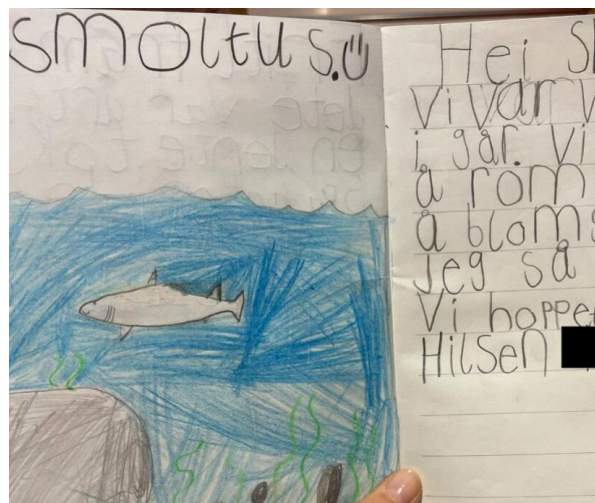 smoltus.
Hei S
Vi var v
i går. Vi
å rom
å bloms
Jeg så
Vi hoppe
Hilsen